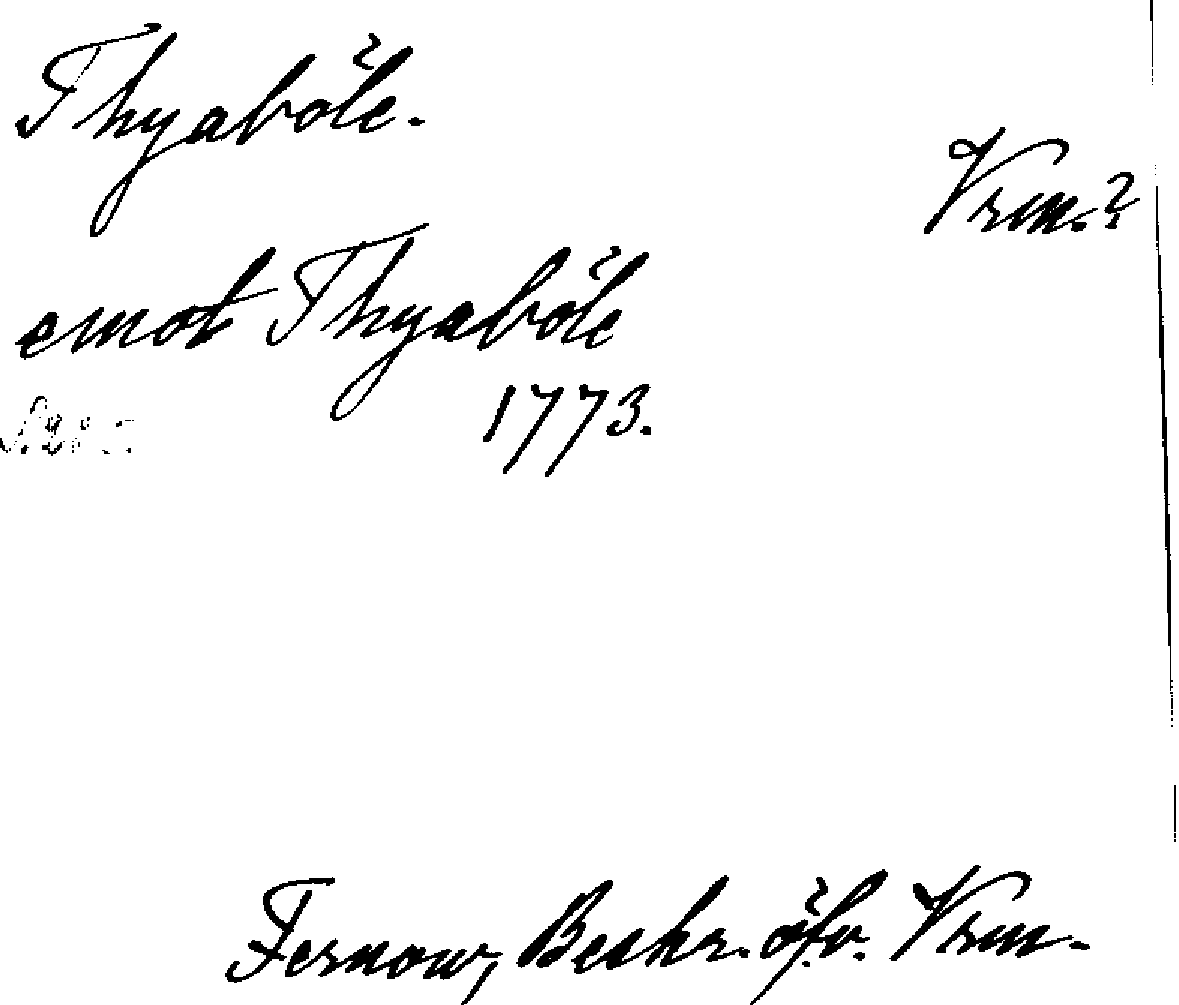 Thyaböle.
Vrm.?
emot Thyaböle
1773.
Fernow, Beskr. öfv. Vrm.